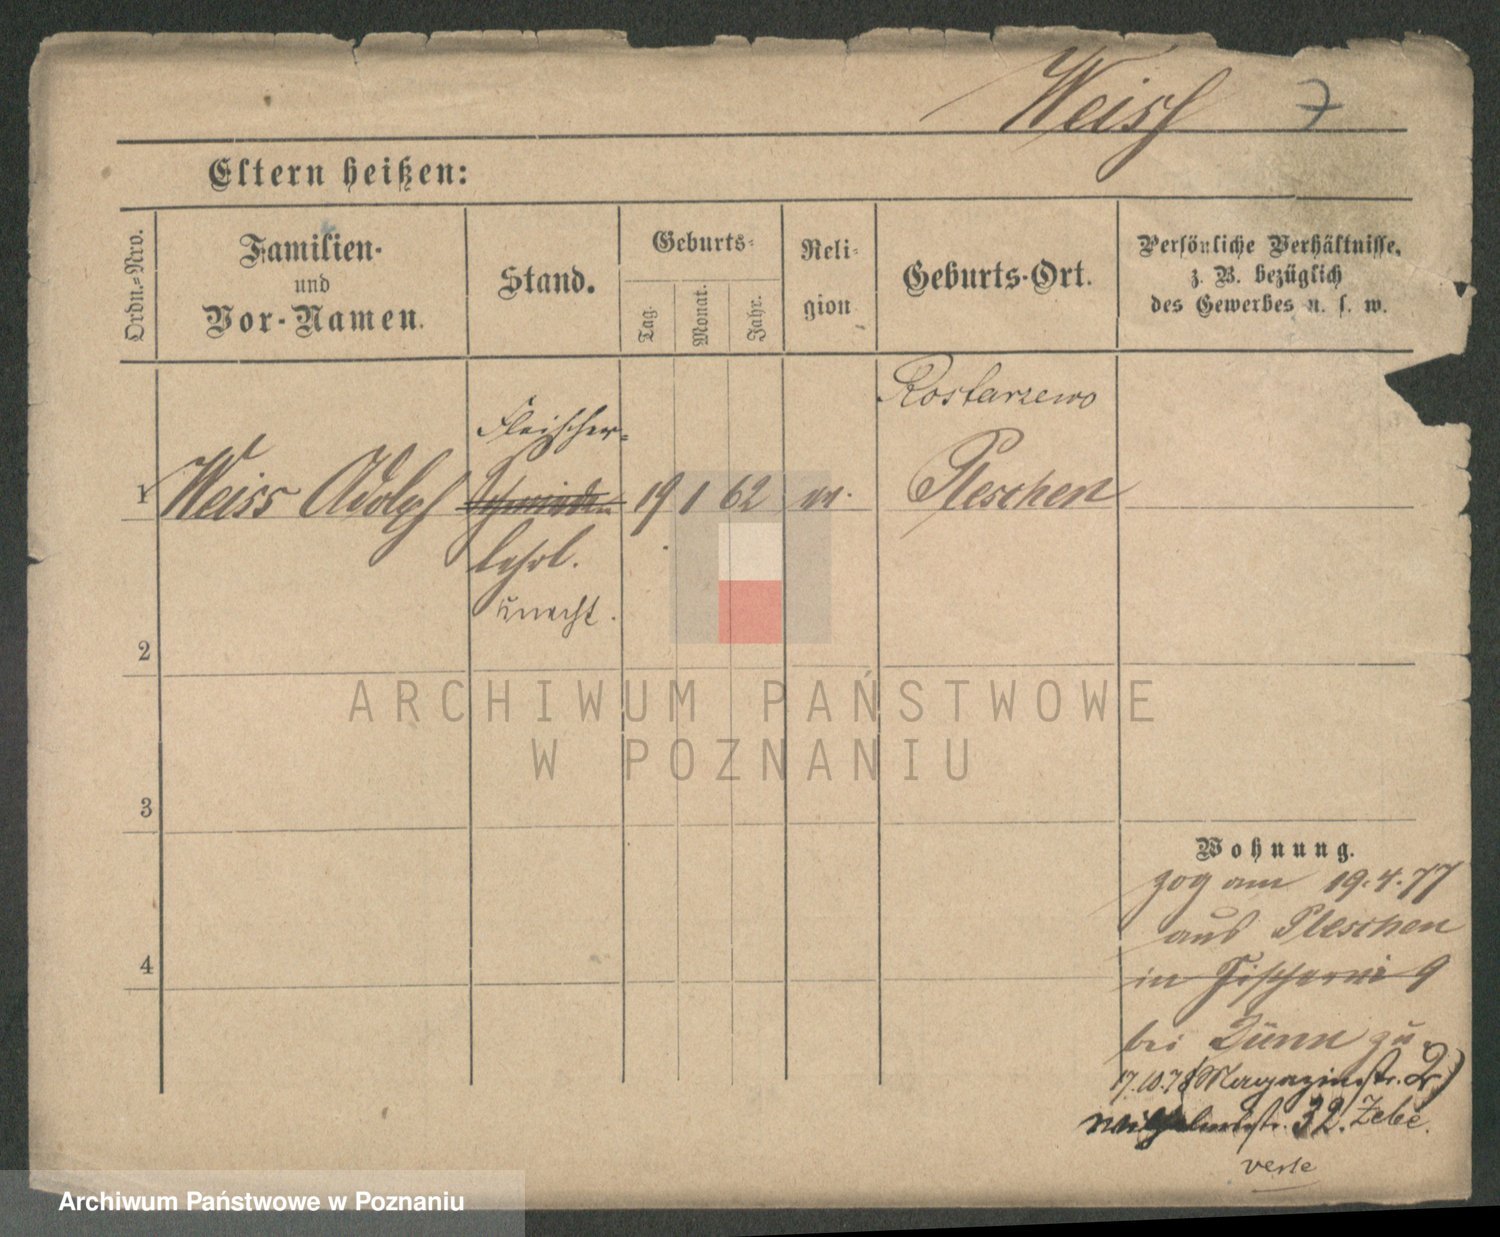 Weiss 7
Eltern heißen:
Ordn.-Nro.
Familien-
und
Vor-Namen.
Stand.
Geburts-
Tag.
Monat.
Jahr.
Reli-
gion
Geburts-Ort.
Persönliche Verhältnisse,
z. B. bezüglich
des Gewerbes u. s. w.
Rostarzewo
Fleischer-
1 Weiss Adolph 19 1 62 m. Pleschen
lehrl.
Knecht.
2
ARCHIWUM PAŃSTWOWE
W POZNANIU
3
Wohnung.
zog am 19.4.77
aus Pleschen
4
in Fischerei 9
bei Dünn zu.
17.10.78 (Magazinstr. 2)
Wilhelmstr. 32. Zebe.
verte
Archiwum Państwowe w Poznaniu